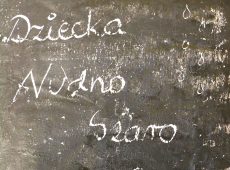 Dziecka
Nudno
Szaro